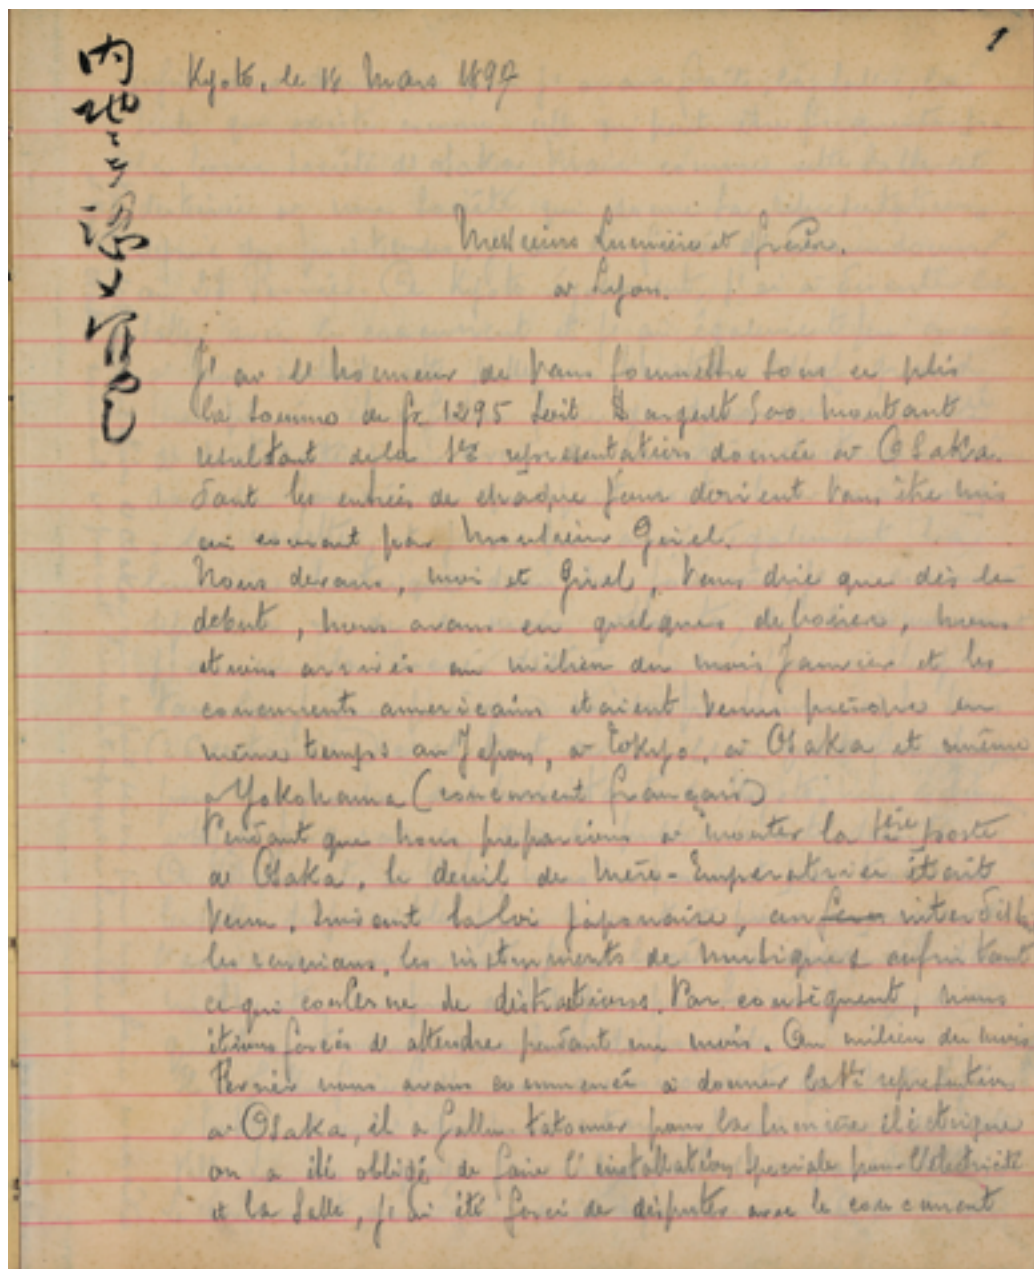 1
Kyoto, le 14 Mars 1897
Messieurs Lumière et frères.
a Lyon.
J' ai l'honneur de vous soumettre sous ce plis
la somme de fr. 1295 soit $ argent 500. montant
resultant de la 1re representation donnée a Osaka.
dont les entrées de chaque jour doivent vous être mis
au courant par Monsieur Girel.
Nous devons, moi et Girel, vous dire que dès le
debut, nous avons eu quelques deboires, nous
etions arrivés au milieu du mois Janvier et les
concurrents americains etaient venus presque en
même temps au Japon, a Tokyo, a Osaka et même
a Yokohama (concurrent français)
Pendant que nous preparions a monter la 1ère poste
a Osaka, le deuil de Mère-Imperatrice était
venu. Suivant la loi japonaise, on interdit
les reunions, les instruments de musiques enfin tout
ce qui concerne de distractions. Par consequent, nous
étions forcés de attendre pendant un mois. Au milieu du mois
dernier nous avons commencé a donner la 1re
a Osaka, il a fallu tatonner pour la lumière éléctrique
on a été obligé de faire l'installation speciale pour l'electricité
et la salle, j'ai été forcé de disputer avec le concurrent
内地